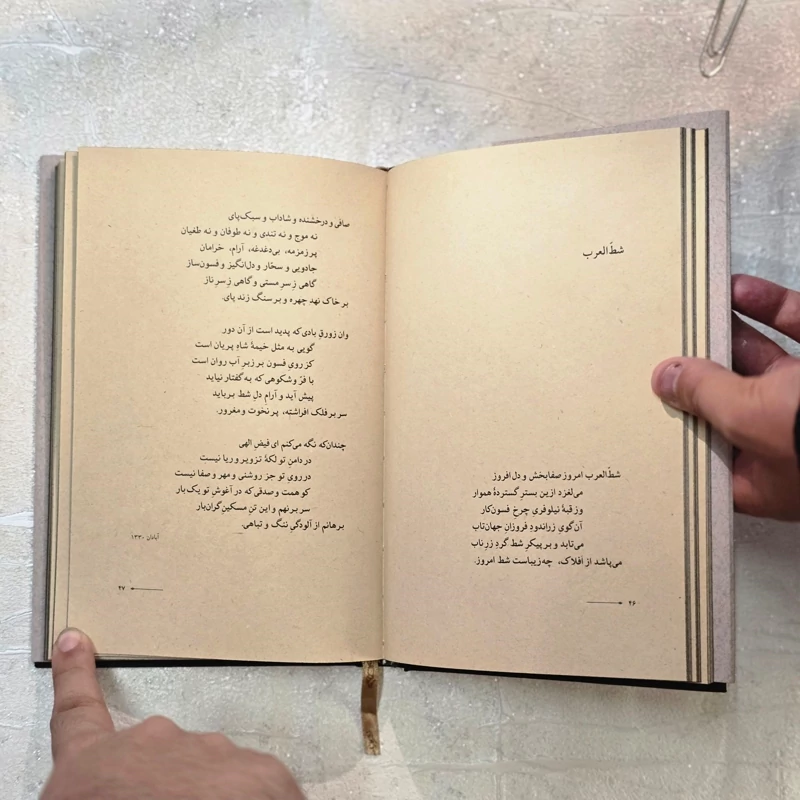 شطّ‌العرب
شطّ‌العرب امروز صفابخش و دل‌افروز
می‌لغزد ازین بسترِ گستردهٔ هموار
وز قبهٔ نیلوفریِ چرخِ فسون‌کار
آن گویِ زراندودِ فروزانِ جهان‌تاب
می‌تابد و بر پیکرِ شط گردِ زرِ ناب
می‌پاشد از افلاک، چه زیباست شط امروز.
۴۶
صافی و درخشنده و شاداب و سبک‌پای
نه موج و نه تندی و نه طوفان و نه طغیان
پر زمزمه، بی‌دغدغه، آرام، خرامان
جادویی و سحّار و دل‌انگیز و فسون‌ساز
گاهی ز سرِ مستی و گاهی ز سرِ ناز
بر خاک نهد چهره و بر سنگ زند پای.
وان زورقِ بادی که پدید است از آن دور
گویی به مثل خیمهٔ شاهِ پریان است
کز رویِ فسون بر زبرِ آب روان است
با فرّ و شکوهی که به گفتار نیاید
پیش آید و آرام دلِ شط برباید
سر بر فلک افراشته، پر نخوت و مغرور.
چندان که نگه می‌کنم ای فیضِ الهی
در دامنِ تو لکهٔ تزویر و ریا نیست
در رویِ تو جز روشنی و مهر و صفا نیست
کو همت و صدقی که در آغوشِ تو یک‌بار
سر برنهم و این تنِ مسکینِ گران‌بار
برهانم از آلودگیِ ننگ و تباهی.
آبادان ۱۳۳۰
۴۷